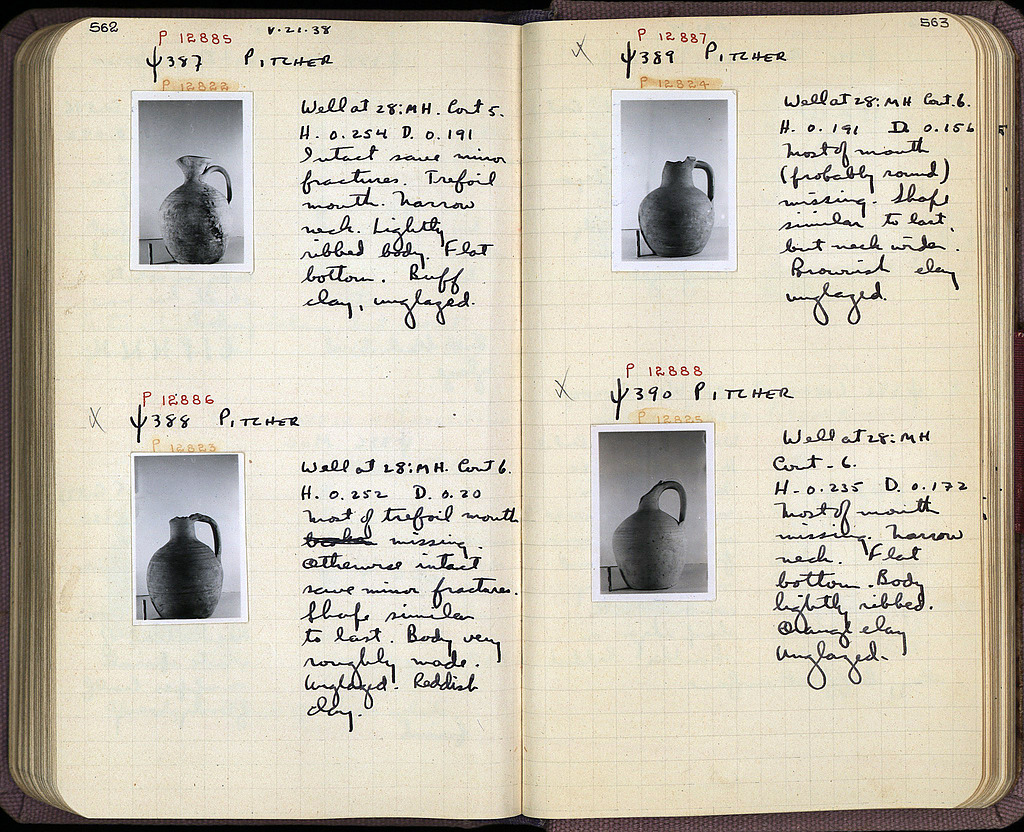 562
V.21.38
P 12885
ψ387 PITCHER
P 12822
Well at 28:MH. Cont 5.
H. 0.254 D. 0.191
Intact save minor
fractures. Trefoil
mouth. Narrow
neck. Lightly
ribbed body. Flat
bottom. Buff
clay, unglazed.
P 12886
ψ388 PITCHER
P 12823
Well at 28:MH. Cont 6.
H. 0.252 D. 0.20
Most of trefoil mouth
missing.
Otherwise intact
save minor fractures.
Shape similar
to last. Body very
roughly made.
Unglazed. Reddish
clay.
563
P 12887
ψ389 PITCHER
P 12824
Well at 28:MH Cont. 6.
H. 0.191 D. 0.156
Most of mouth
(probably round)
missing. Shape
similar to last,
but neck wider.
Brownish clay
unglazed.
P 12888
ψ390 PITCHER
P 12825
Well at 28:MH
Cont - 6.
H - 0.235 D. 0.172
Most of mouth
missing. Narrow
neck. Flat
bottom. Body
lightly ribbed.
Orange clay
Unglazed.